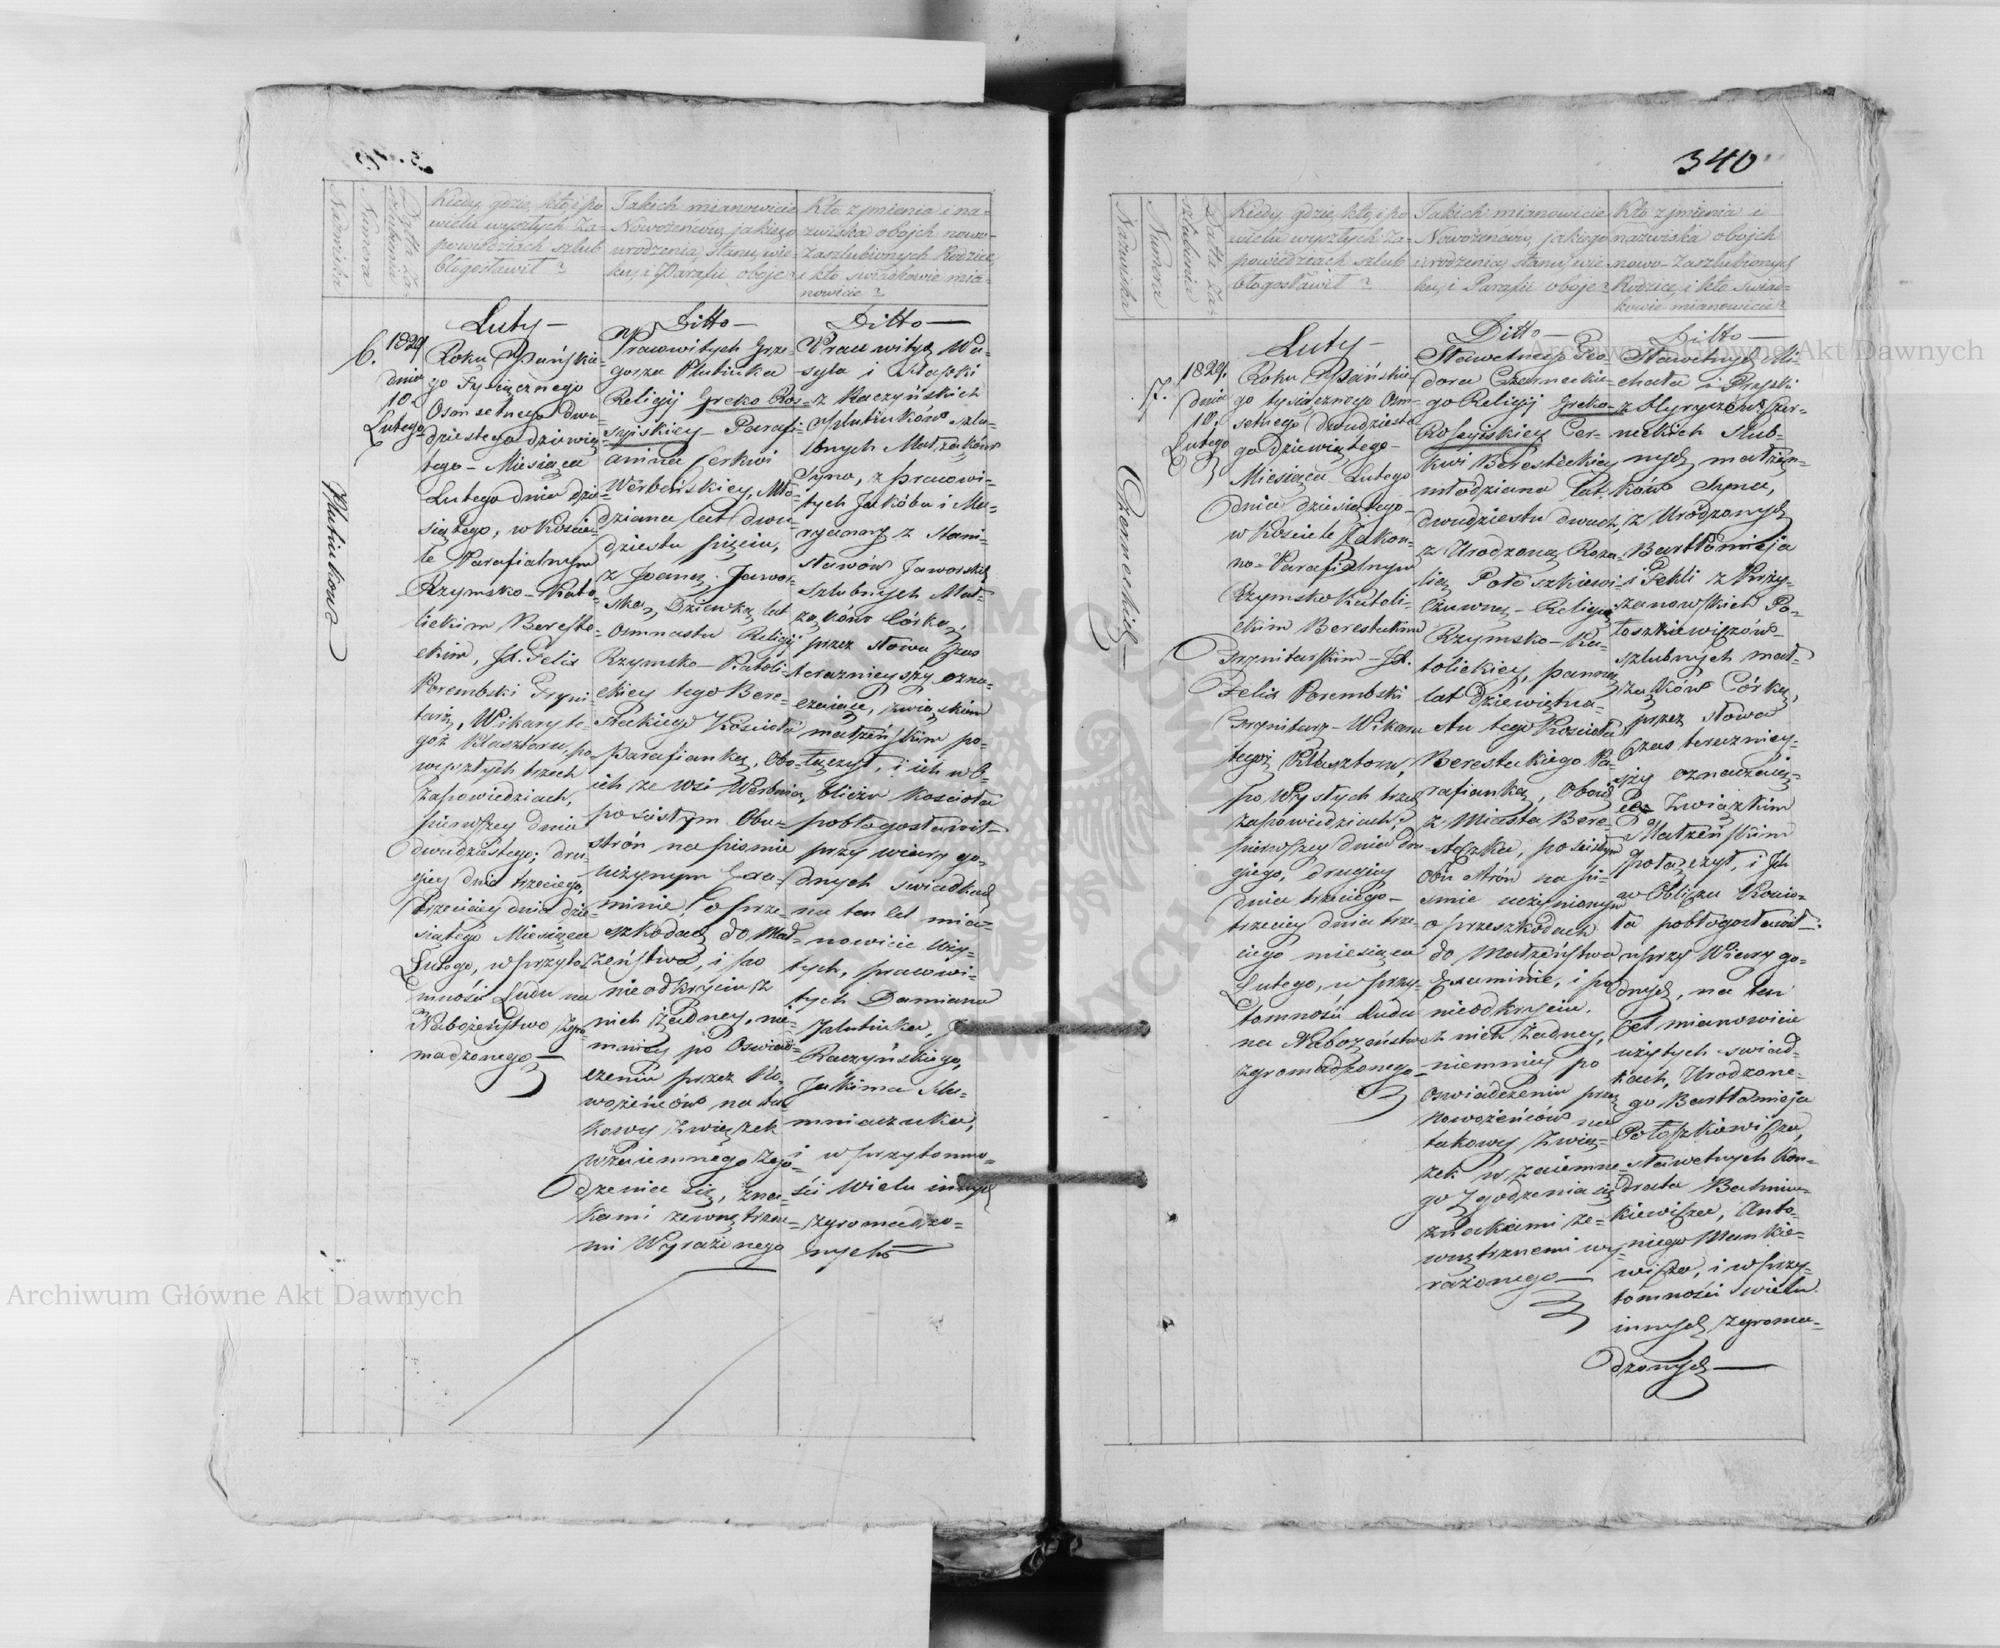 340
Nazwiska
Numera
Datta Za-
szlubienia
Kiedy, gdzie, kto, i po
wielu wyszłych Za-
powiedziach szlub
błogosławił?
Jakich mianowicie
Nowożeńców, jakiego
urodzenia, stanu, wie-
ku, i Parafii oboje
Kto z jmienia i na-
zwiska obojch nowo-
Zaszlubionych Rodzice
i kto swiadkowie mia-
nowicie?
6.
1829
dnia
10.
Lutego
Luty—
Roku Pańskie-
go Tysiącznego
Osmsetnego dwu-
dziestego dziewią-
tego— Miesiąca
Lutego dnia dzie-
siątego, w Koście-
le Parafialnym
Rzymsko-Kato-
lickim Bereste-
ckim, Jx. Felix
Porembski Tryni-
tarz, Wikary te-
goż Klasztoru, po
wyszłych trzech
zapowiedziach,
pierwszey dnia
dwudziestego; dru-
giey dnia trzeciego,
trzeciey dnia dzie-
siątego Miesiąca
Lutego, w przyto-
mności Ludu na
Nabożeństwo zgro-
madzonego—
Ditto—
Pracowitych Grze-
gorza
Religij Greko Ros-
syiskiey— Parafi-
anina Cerkwi
Werbeńskiey, Mło-
dziana lat dwu-
dziestu pięciu,
z Joanną Jawor-
ską, Dziewką lat
Osmnastu Religij
Rzymsko-Katoli-
ckiey tego Bere-
steckiego Kościoła
parafianką, Obo-
ich ze wsi Werbnia,
po ścisłym Obu-
strón na pismie
uczynym Exa-
minie, o prze-
szkodach do Mał-
żeństwa, i po
nieodkryciu z
nich żadney, nie-
mniey po Oswiad-
czeniu przez No-
wożeńców na ta-
kowy Związek
wzaiemnego zgo-
dzenia się, zna-
kami zewnętrzne-
mi Wyrażonego
Ditto—
Pracowitych Wa-
syla i
z Raczyńskich
szlu-
bnych Małżonków
Syna, z pracowi-
tych Jakóba i Ma-
ryanny z Stani-
sławów Jaworskich
Szlubnych Mał-
żonków Córką,
przez słowa czas
teraznieyszy ozna-
czaiące, związkiem
małżeńskim po-
łączył, i ich w O-
bliczu Kościoła
pobłogosławił—
przy wiary go-
dnych swiadkach
na ten cel mia-
nowicie Uży-
tych, pracowi-
tych Damiana
Raczyńskiego,
Jakima
i w przytomno-
ści Wielu innych
zgromadzo-
nych—
Nazwiska
Numera
Datta Za-
szlubienia
Kiedy, gdzie, kto, i po
wielu wyszłych Za-
powiedziach szlub
błogosławił?
Jakich mianowicie
Nowożeńców, jakiego
urodzenia, stanu, wie-
ku, i Parafii oboje?
Kto z jmienia i
nazwiska obojch
nowo-Zaszlubionych
Rodzice, i kto Swiad-
kowie mianowicie?
7.
1829.
dnia
10.
Lutego
Luty—
Roku Pańskie-
go tysiącznego Osm-
setnego Dwudziesto
go Dziewiątego—
Miesiąca Lutego
dnia dziesiątego—
w Kościele Zakon-
no-Parafialnym
Rzymsko Katoli-
ckim Beresteckim
Trynitarskim— Jx.
Felix Porembski
Trynitarz— Wikary
tegoż Klasztoru,
po Wyszłych trzech
zapowiedziach,
pierwszey dnia dru-
giego, drugiey
dnia trzeciego—
trzeciey dnia
miesiąca
Lutego, w przy-
tomności Ludu
na Nabożeństwo
zgromadzonego—
Ditto—
Sławetnego Teo-
dora Czerneckie-
go Religij Greko-
Rossyiskiey Cer-
kwi Beresteckiey
młodziana lat
dwudziestu dwuch,
z Urodzoną Roza-
lią Połoszkiewi-
czuwną— Religij
Rzymsko-Ka-
tolickiey, panną
lat Dziewiętna-
stu tego Kościoła
Beresteckiego Pa-
rafianką, Oboich
z Miasta Bere-
steczka, po ścisłym
Obu strón na pi-
smie uczynionym
o przeszkodach
do Małżeństwa
Examinie, i po
nieodkryciu
z nich żadney,
niemniey po
oswiadczeniu przez
nowożeńców na
takowy Zwią-
zek wzaiemne-
go zgodzenia się
znakami ze-
wnętrznemi wy-
rażonego—
Ditto—
Sławetnych Mi-
chała i
Czer-
neckich szlub-
nych małżon-
ków Syna,
z Urodzonych
Bartłomieja
i Tekli z Krzy-
szanowskich Po-
łoszkiewiczów—
szlubnych mał-
żonków Córką,
przez słowa
czas teraźniey-
szy oznaczaią-
ce Związkiem
Małżeńskim
Połączył, i Jch
w Obliczu Kościo-
ła pobłogosławił—
przy Wiary go-
dnych, na ten
Cel mianowicie
użytych swiad-
kach, Urodzone-
go Bartłomieja
Połoszkiewicza,
sławetnych Kon-
drata
kiewicza, Anto-
niego Mankie-
wicza, i w przy-
tomności wielu
innych zgroma-
dzonych—
Czerneckich—
Archiwum Główne Akt Dawnych
Archiwum Główne Akt Dawnych